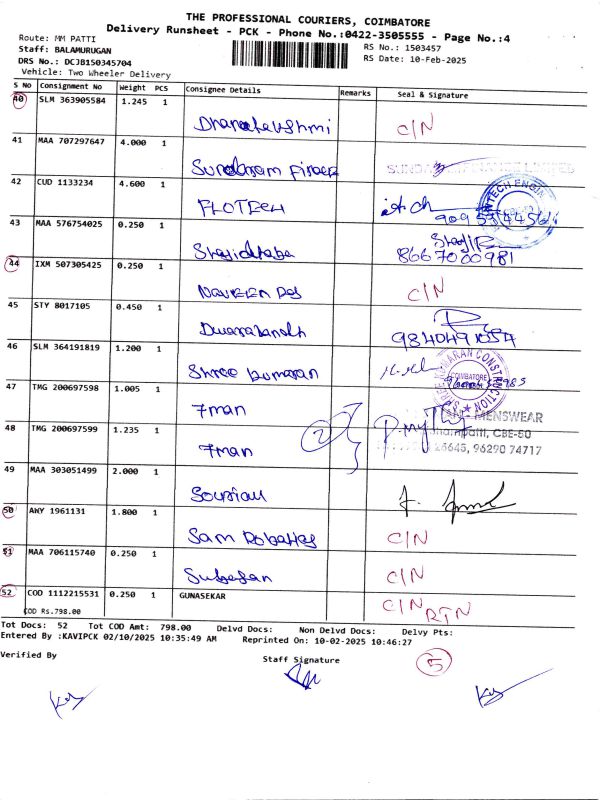 THE PROFESSIONAL COURIERS, COIMBATORE
Delivery Runsheet - PCK - Phone No.:0422-3505555 - Page No.:4
Route: MM PATTI
RS No.: 1503457
Staff: BALAMURUGAN
RS Date: 10-Feb-2025
DRS No.: DCJB150345704
Vehicle: Two Wheeler Delivery
S No Consignment No Weight PCS Consignee Details Remarks Seal & Signature
40 SLM 363905584 1.245 1
Dhanalakshmi C/N
41 MAA 707297647 4.000 1
Sundaram
42 CUD 1133234 4.600 1
FLOTECH
43 MAA 576754025 0.250 1
8667000981
44 IXM 507305425 0.250 1
NAVEEN C/N
45 STY 8017105 0.450 1
46 SLM 364191819 1.200 1
Shree kumaran
COIMBATORE
47 TMG 200697598 1.005 1
7man
MENSWEAR
48 TMG 200697599 1.235 1
CBE-50
7man 2
25645, 96290 74717
49 MAA 303051499 2.000 1
50 AWY 1961131 1.800 1
Sam C/N
51 MAA 706115740 0.250 1
C/N
52 COD 1112215531 0.250 1 GUNASEKAR
COD Rs.798.00
C/N RTN
Tot Docs: 52 Tot COD Amt: 798.00 Delvd Docs: Non Delvd Docs: Delvy Pts:
Entered By :KAVIPCK 02/10/2025 10:35:49 AM Reprinted On: 10-02-2025 10:46:27
Verified By
Staff Signature
5